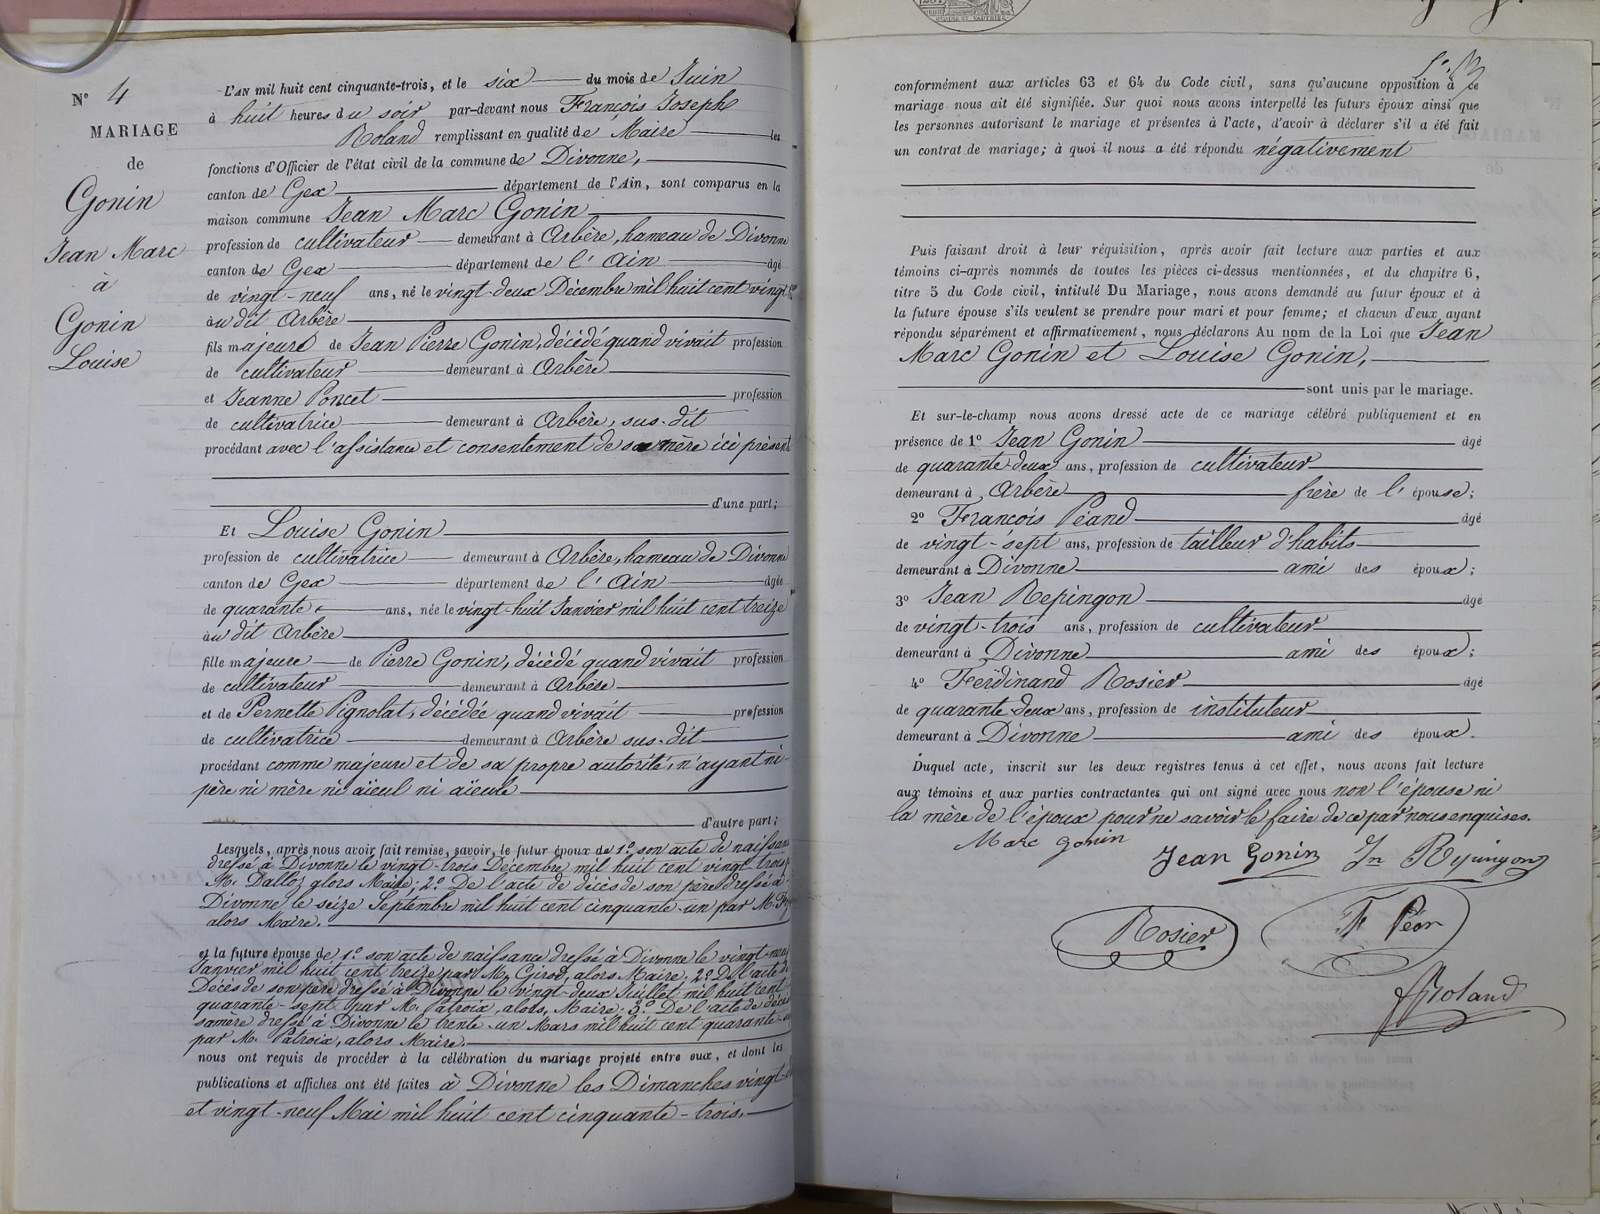 N° 4
MARIAGE
de
Gonin
Jean Marc
à
Gonin
Louise
L'AN mil huit cent cinquante-trois, et le six du mois de Juin
à huit heures du soir par-devant nous François Joseph
Roland remplissant en qualité de Maire les
fonctions d'Officier de l'état civil de la commune de Divonne,
canton de Gex département de l'Ain, sont comparus en la
maison commune Jean Marc Gonin
profession de cultivateur demeurant à Arbère, hameau de Divonne
canton de Gex département de l'Ain âgé
de vingt-neuf ans, né le vingt-deux Décembre mil huit cent vingt
au dit Arbère
fils majeure de Jean Pierre Gonin, décédé quand vivait profession
de cultivateur demeurant à Arbère
et Jeanne Poncet profession
de cultivatrice demeurant à Arbère, sus-dit
procédant avec l'assistance et consentement de sa mère ici présent
d'une part;
Et Louise Gonin
profession de cultivatrice demeurant à Arbère, hameau de Divonne
canton de Gex département de l'Ain âgée
de quarante ans, née le vingt-huit Janvier mil huit cent treize
au dit Arbère
fille majeure de Pierre Gonin, décédé quand vivait profession
de cultivateur demeurant à Arbère
et de Pernette Pignolat, décédée quand vivait profession
de cultivatrice demeurant à Arbère sus-dit
procédant comme majeure et de sa propre autorité, n'ayant ni
père ni mère ni aïeul ni aïeule
d'autre part;
Lesquels, après nous avoir fait remise, savoir, le futur époux de 1° son acte de naissance
dressé à Divonne le vingt-trois Décembre mil huit cent vingt trois
M. Dalloz alors Maire; 2° De l'acte de décès de son père dressé à
Divonne le seize Septembre mil huit cent cinquante-un par M.
alors Maire.
et la future épouse de 1° son acte de naissance dressé à Divonne le vingt-neuf
Janvier mil huit cent treize par M. Girod, alors Maire, 2° De l'acte de
Décès de son père dressé à Divonne le vingt-deux Juillet mil huit cent
quarante-sept par M. Patroix, alors Maire; 3° De l'acte de décès
sa mère dressé à Divonne le trente-un Mars mil huit cent quarante
par M. Patroix, alors Maire.
nous ont requis de procéder à la célébration du mariage projeté entre eux, et dont les
publications et affiches ont été faites à Divonne les Dimanches vingt
et vingt-neuf Mai mil huit cent cinquante-trois,
conformément aux articles 63 et 64 du Code civil, sans qu'aucune opposition à ce
mariage nous ait été signifiée. Sur quoi nous avons interpellé les futurs époux ainsi que
les personnes autorisant le mariage et présentes à l'acte, d'avoir à déclarer s'il a été fait
un contrat de mariage; à quoi il nous a été répondu négativement
Puis faisant droit à leur réquisition, après avoir fait lecture aux parties et aux
témoins ci-après nommés de toutes les pièces ci-dessus mentionnées, et du chapitre 6,
titre 5 du Code civil, intitulé Du Mariage, nous avons demandé au futur époux et à
la future épouse s'ils veulent se prendre pour mari et pour femme; et chacun d'eux ayant
répondu séparément et affirmativement, nous déclarons Au nom de la Loi que Jean
Marc Gonin et Louise Gonin,
sont unis par le mariage.
Et sur-le-champ nous avons dressé acte de ce mariage célébré publiquement et en
présence de 1° Jean Gonin âgé
de quarante-deux ans, profession de cultivateur
demeurant à Arbère frère de l'épouse;
2° François Péand âgé
de vingt-sept ans, profession de tailleur d'habits
demeurant à Divonne ami des époux;
3° Jean Repingon âgé
de vingt-trois ans, profession de cultivateur
demeurant à Divonne ami des époux;
4° Ferdinand Rosier âgé
de quarante-deux ans, profession de instituteur
demeurant à Divonne ami des époux.
Duquel acte, inscrit sur les deux registres tenus à cet effet, nous avons fait lecture
aux témoins et aux parties contractantes qui ont signé avec nous non l'épouse ni
la mère de l'époux pour ne savoir le faire de ce par nous enquises.
Marc Gonin
Jean Gonin
Rosier
Roland